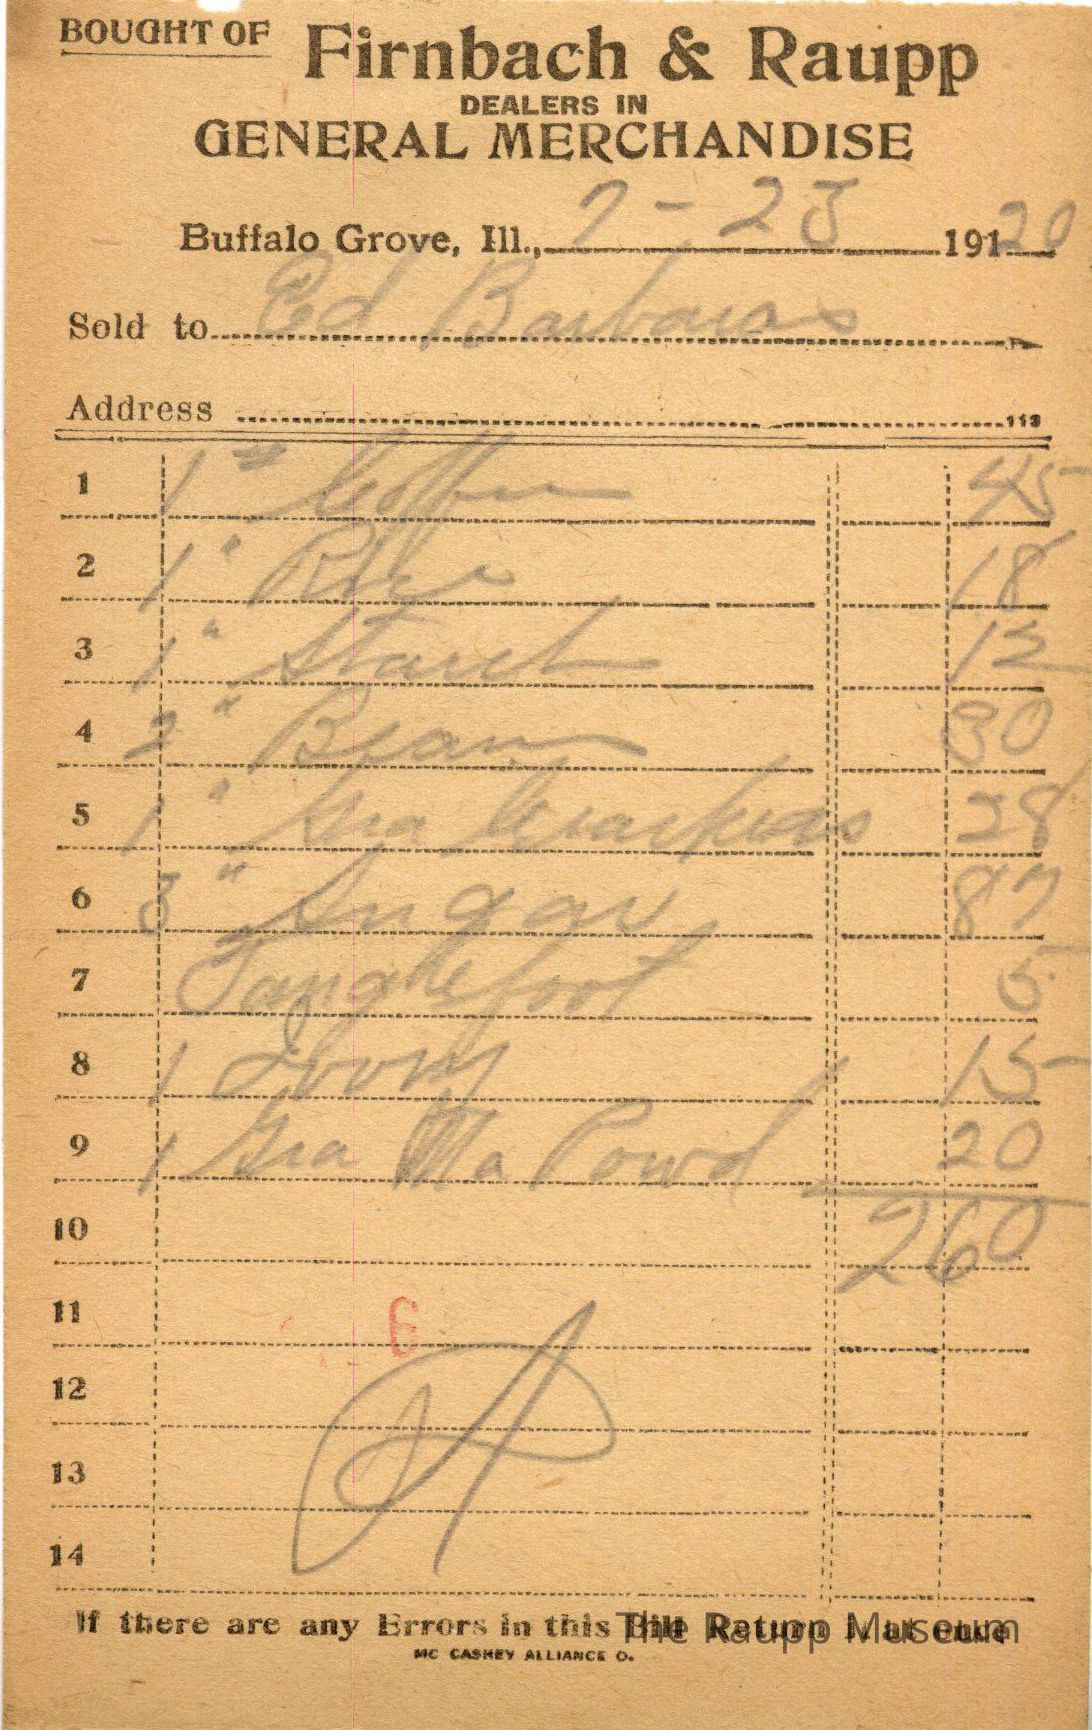 BOUGHT OF Firnbach & Raupp
DEALERS IN
GENERAL MERCHANDISE
Buffalo Grove, Ill., 7-23 191 20
Sold to Ed Barbaras
Address 113
1 1 # Coffee 45
2 1 " Rice 18
3 1 " Starch 12
4 2 " Bean 30
5 1 " Gra Crackers 28
6 3 " Sugar 87
7 Tanglefoot 5
8 1 Ivory 15
9 1 Gra Ma Powd 20
10 260
11 6
12
13
14
If there are any Errors in this Bill Return It at once
The Raupp Museum
MC CASKEY ALLIANCE O.